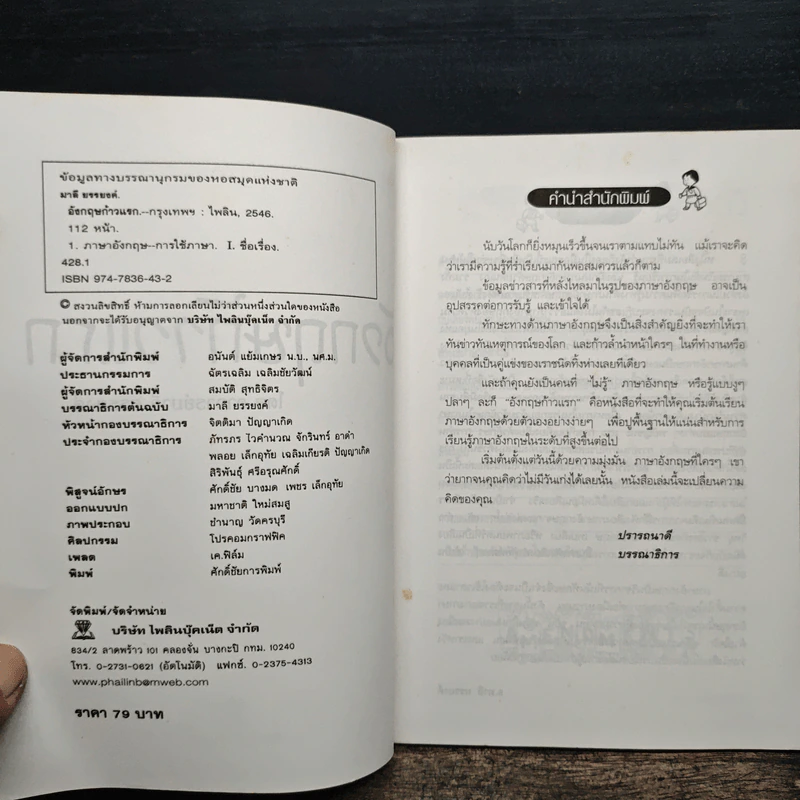 ข้อมูลทางบรรณานุกรมของหอสมุดแห่งชาติ
มาลี ยรรยงค์.
อังกฤษก้าวแรก.--กรุงเทพฯ : ไพลิน, 2546.
112 หน้า.
1. ภาษาอังกฤษ--การใช้ภาษา. I. ชื่อเรื่อง.
428.1
ISBN 974-7836-43-2
© สงวนลิขสิทธิ์ ห้ามการลอกเลียนไม่ว่าส่วนหนึ่งส่วนใดของหนังสือ
นอกจากจะได้รับอนุญาตจาก บริษัท ไพลินบุ๊คเน็ต จำกัด
ผู้จัดการสำนักพิมพ์ อนันต์ แย้มเกษร น.บ., นศ.ม.
ประธานกรรมการ ฉัตรเฉลิม เฉลิมชัยวัฒน์
ผู้จัดการสำนักพิมพ์ สมบัติ สุทธิจิตร
บรรณาธิการต้นฉบับ มาลี ยรรยงค์
หัวหน้ากองบรรณาธิการ จิตติมา ปัญญาเกิด
ประจำกองบรรณาธิการ ภัทรภร ไวคำนวณ จักรินทร์ อาด่า
พลอย เล็กอุทัย เฉลิมเกียรติ ปัญญาเกิด
สิริพันธุ์ ศรีอรุณศักดิ์
พิสูจน์อักษร ศักดิ์ชัย บางมด เพชร เล็กอุทัย
ออกแบบปก มหาชาติ ใหม่สมสู
ภาพประกอบ ชำนาญ วัดครบุรี
ศิลปกรรม โปรคอมกราฟฟิค
เพลต เค.ฟิล์ม
พิมพ์ ศักดิ์ชัยการพิมพ์
จัดพิมพ์/จัดจำหน่าย
บริษัท ไพลินบุ๊คเน็ต จำกัด
834/2 ลาดพร้าว 101 คลองจั่น บางกะปิ กทม. 10240
โทร. 0-2731-0621 (อัตโนมัติ) แฟกซ์. 0-2375-4313
www.phailinb@mweb.com
ราคา 79 บาท
คำนำสำนักพิมพ์
นับวันโลกก็ยิ่งหมุนเร็วขึ้นจนเราตามแทบไม่ทัน แม้เราจะคิด
ว่าเรามีความรู้ที่ร่ำเรียนมากันพอสมควรแล้วก็ตาม
ข้อมูลข่าวสารที่หลั่งไหลมาในรูปของภาษาอังกฤษ อาจเป็น
อุปสรรคต่อการรับรู้ และเข้าใจได้
ทักษะทางด้านภาษาอังกฤษจึงเป็นสิ่งสำคัญยิ่งที่จะทำให้เรา
ทันข่าวทันเหตุการณ์ของโลก และก้าวล้ำนำหน้าใครๆ ในที่ทำงานหรือ
บุคคลที่เป็นคู่แข่งของเราชนิดทิ้งห่างเลยทีเดียว
และถ้าคุณยังเป็นคนที่ "ไม่รู้" ภาษาอังกฤษ หรือรู้แบบงูๆ
ปลาๆ ละก็ "อังกฤษก้าวแรก" คือหนังสือที่จะทำให้คุณเริ่มต้นเรียน
ภาษาอังกฤษด้วยตัวเองอย่างง่ายๆ เพื่อปูพื้นฐานให้แน่นสำหรับการ
เรียนรู้ภาษาอังกฤษในระดับที่สูงขึ้นต่อไป
เริ่มต้นตั้งแต่วันนี้ด้วยความมุ่งมั่น ภาษาอังกฤษที่ใครๆ เขา
ว่ายากจนคุณคิดว่าไม่มีวันเก่งได้เลยนั้น หนังสือเล่มนี้จะเปลี่ยนความ
คิดของคุณ
ปรารถนาดี
บรรณาธิการ